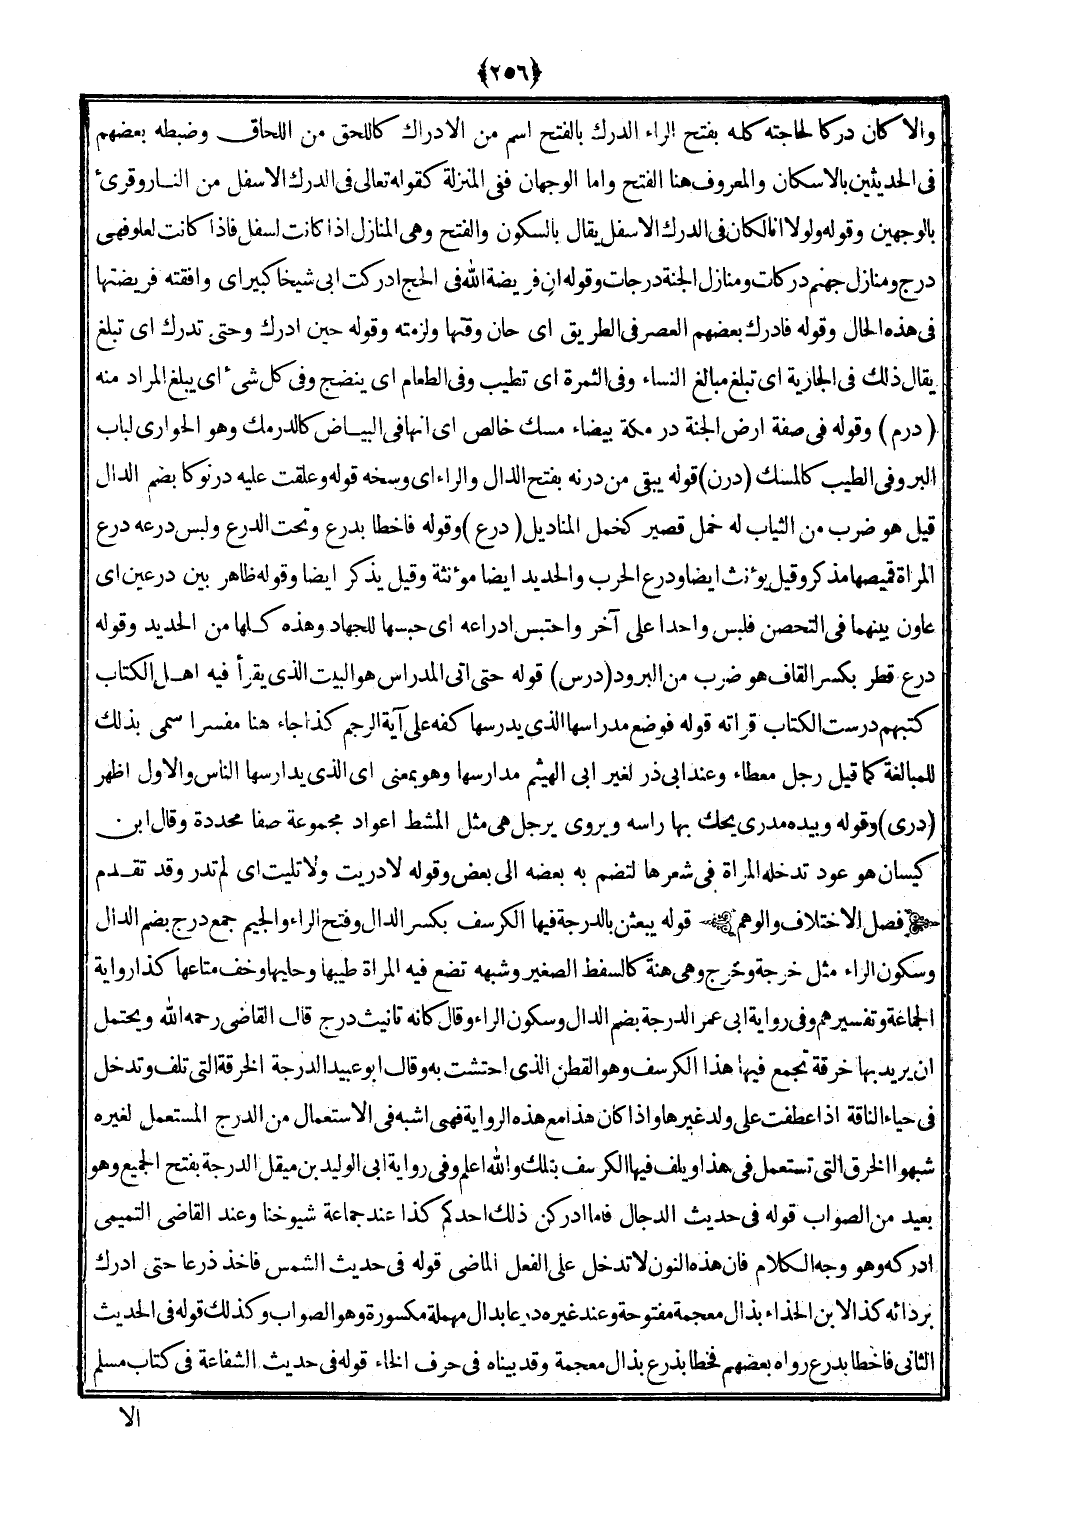 ﴿٢٥٦﴾
والا كان دركا لحاجته كله بفتح الراء الدرك بالفتح اسم من الادراك كاللحق من اللحاق وضبطه بعضهم
فى الحديثين بالاسكان والمعروف هنا الفتح واما الوجهان ففى المنزلة كقوله تعالى فى الدرك الاسفل من النار وقرئ
بالوجهين وقوله ولولا انا لكان فى الدرك الاسفل يقال بالسكون والفتح وهى المنازل اذا كانت لسفل فاذا كانت لعلو فهى
درج ومنازل جهنم دركات ومنازل الجنة درجات وقوله ان فريضة الله فى الحج ادركت ابى شيخا كبيرا اى وافقته فريضتها
فى هذه الحال وقوله فادرك بعضهم العصر فى الطريق اى حان وقتها ولزمته وقوله حين ادرك وحتى تدرك اى تبلغ
يقال ذلك فى الجارية اى تبلغ مبالغ النساء وفى الثمرة اى تطيب وفى الطعام اى ينضج وفى كل شىء اى يبلغ المراد منه
(درم) وقوله فى صفة ارض الجنة درمكة بيضاء مسك خالص اى انها فى البياض كالدرمك وهو الحوارى لباب
البر وفى الطيب كالمسك (درن) قوله يبقى من درنه بفتح الدال والراء اى وسخه قوله وعلقت عليه درنوكا بضم الدال
قيل هو ضرب من الثياب له خمل قصير كخمل المناديل (درع) وقوله فاخطا بدرع وتحت الدرع ولبس درعه درع
المراة قميصها مذكر وقيل يوٴنث ايضا ودرع الحرب والحديد ايضا موٴنثة وقيل يذكر ايضا وقوله ظاهر بين درعين اى
عاون بينهما فى التحصن فلبس واحدا على آخر واحتبس ادراعه اى حبسها للجهاد وهذه كلها من الحديد وقوله
درع قطر بكسر القاف هو ضرب من البرود (درس) قوله حتى اتى المدراس هو البيت الذى يقرأ فيه اهل الكتاب
كتبهم درست الكتاب قراته قوله فوضع مدراسها الذى يدرسها كفه على آية الرجم كذا جاء هنا مفسرا سمى بذلك
للمبالغة كما قيل رجل معطاء وعند ابى ذر لغير ابى الهيثم مدارسها وهو بمعنى اى الذى يدارسها الناس والاول اظهر
(درى) وقوله وبيده مدرى يحك بها راسه ويروى يرجل هى مثل المشط اعواد مجموعة صفا محددة وقال ابن
كيسان هو عود تدخله المراة فى شعرها لتضم به بعضه الى بعض وقوله لا دريت ولا تليت اى لم تدر وقد تقدم
﴿فصل الاختلاف والوهم﴾ قوله يبعثن بالدرجة فيها الكرسف بكسر الدال وفتح الراء والجيم جمع درج بضم الدال
وسكون الراء مثل خرجة وخُرج وهى هنة كالسفط الصغير وشبهه تضع فيه المراة طيبها وحليها وخف متاعها كذا رواية
الجماعة وتفسيرهم وفى رواية ابى عمر الدرجة بضم الدال وسكون الراء وقال كانه تانيث درج قال القاضى رحمه الله ويحتمل
ان يريد بها خرقة تجمع فيها هذا الكرسف وهو القطن الذى احتشت به وقال ابو عبيد الدرجة الخرقة التى تلف وتدخل
فى حياء الناقة اذا عطفت على ولد غيرها واذا كان هذا مع هذه الرواية فهى اشبه فى الاستعمال من الدرج المستعمل لغيره
شبهوا الخرق التى تستعمل فى هذا ويلف فيها الكرسف بتلك والله اعلم وفى رواية ابى الوليد بن ميقل الدرجة بفتح الجميع وهو
بعيد من الصواب قوله فى حديث الدجال فاما ادركن ذلك احدكم كذا عند جماعة شيوخنا وعند القاضى التميمى
ادركه وهو وجه الكلام فان هذه النون لا تدخل على الفعل الماضى قوله فى حديث الشمس فاخذ ذرعا حتى ادرك
بردائه كذا لابن الحذاء بذال معجمة مفتوحة وعند غيره درعا بدال مهملة مكسورة وهو الصواب وكذلك قوله فى الحديث
الثانى فاخطا بدرع رواه بعضهم فخطا بذرع بذال معجمة وقد بيناه فى حرف الخاء قوله فى حديث الشفاعة فى كتاب مسلم
الا